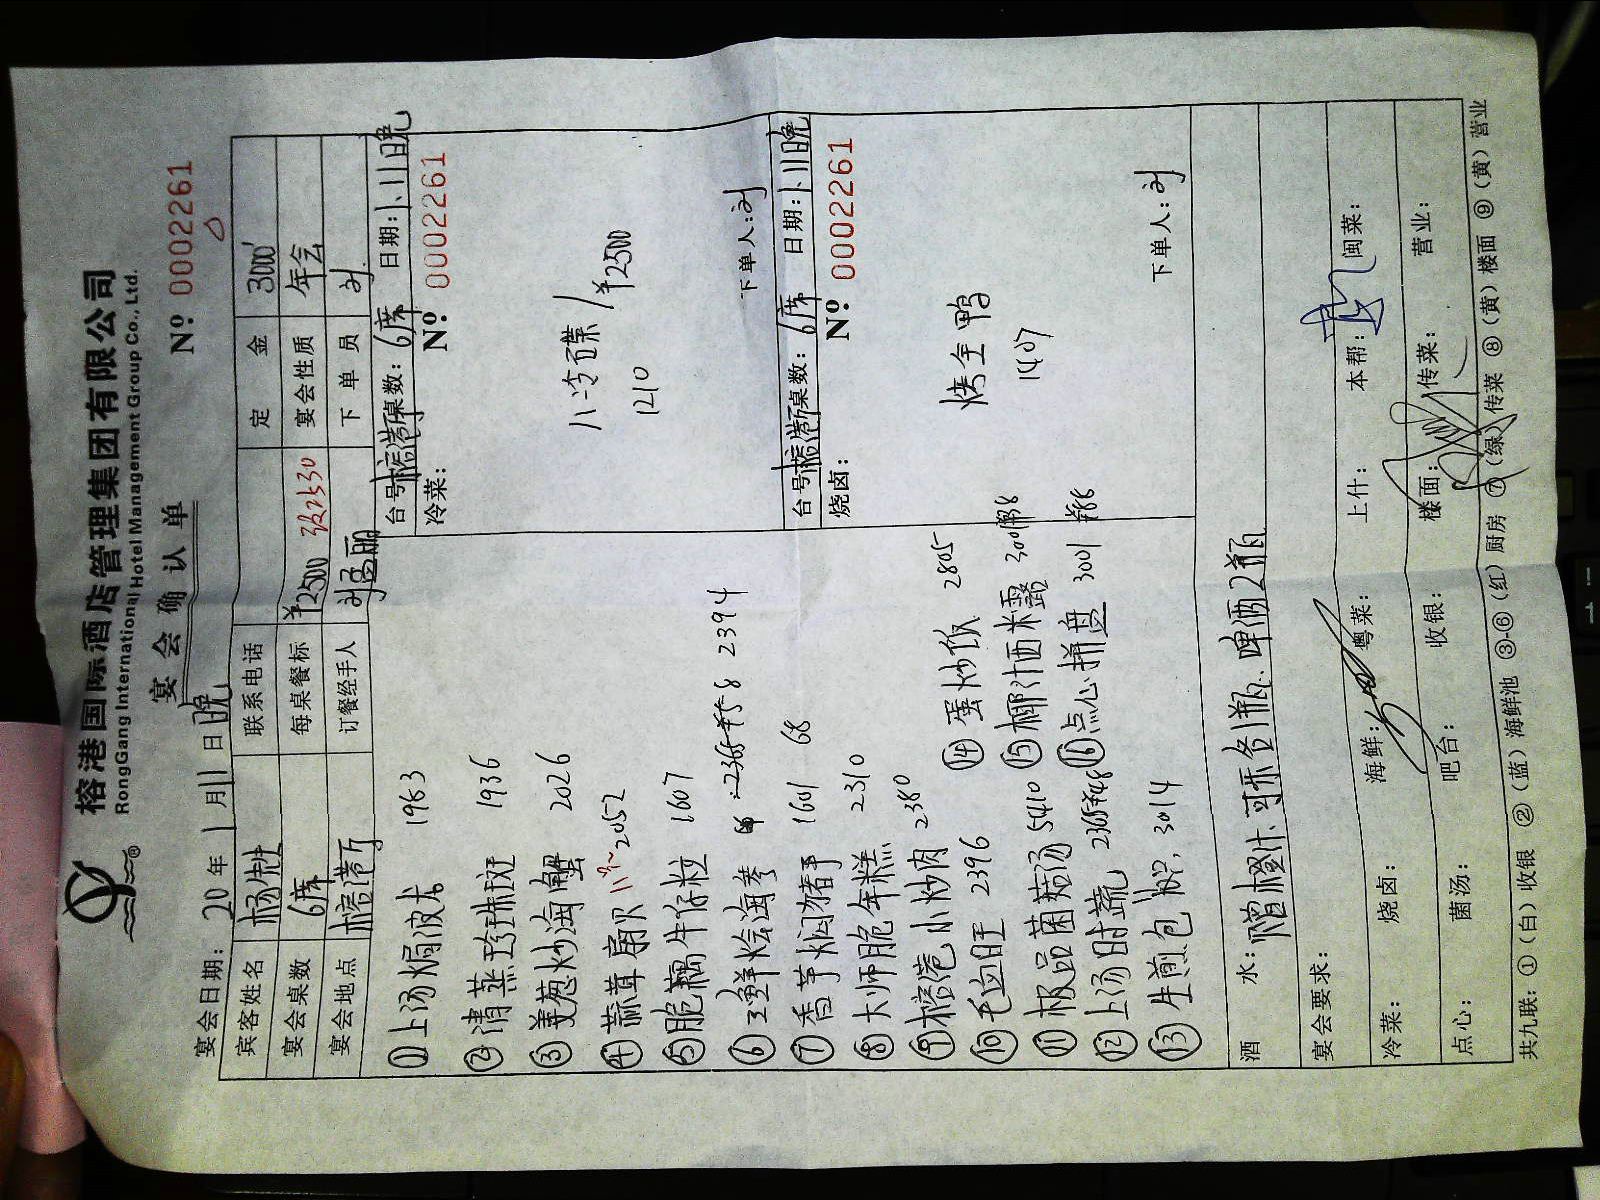 榕港国际酒店管理集团有限公司
RongGang International Hotel Management Group Co., Ltd.
宴会确认单
№ 0002261
宴会日期: 20 年 1 月 11 日 晚
宾客姓名 杨 联系电话 定金 3000
宴会桌数 6席 每桌餐标 ¥2500 宴会性质 年会
宴会地点 榕港厅 订餐经手人 刘孟丽 下单员 刘
① 上汤焗波龙 1963
② 清蒸珍珠斑 1936
③ 姜葱炒海蟹 2026
④ 蒜茸扇贝 2052
⑤ 脆藕牛仔粒 1607
⑥ 三鲜烩海参 2394
⑦ 香芋焖猪手 1601 68
⑧ 大师脆年糕 2310
⑨ 榕港小炒肉 2380
⑩ 毛血旺 2396
⑪ 极品菌菇汤 5410
⑫ 上汤时蔬 2365
⑬ 生煎包 3014
⑭ 蛋炒饭 2805
⑮ 椰汁西米露
⑯ 点心拼盘 3001
台号: 榕港厅 桌数: 6席 日期: 1.11晚
冷菜: № 0002261
八冷碟 / ¥2500
1210
下单人: 刘
台号: 榕港厅 桌数: 6席 日期: 1.11晚
烧卤: № 0002261
烤全鸭
1407
下单人: 刘
酒水: 赠橙汁.可乐各1瓶.啤酒2瓶
宴会要求:
冷菜: 烧卤: 海鲜: 粤菜: 上什: 本帮: 闽菜:
点心: 菌汤: 吧台: 收银: 楼面: 传菜: 营业:
共九联: ①(白)收银 ②(蓝)海鲜池 ③-⑥(红)厨房 ⑦(绿)传菜 ⑧(黄)楼面 ⑨(黄)营业